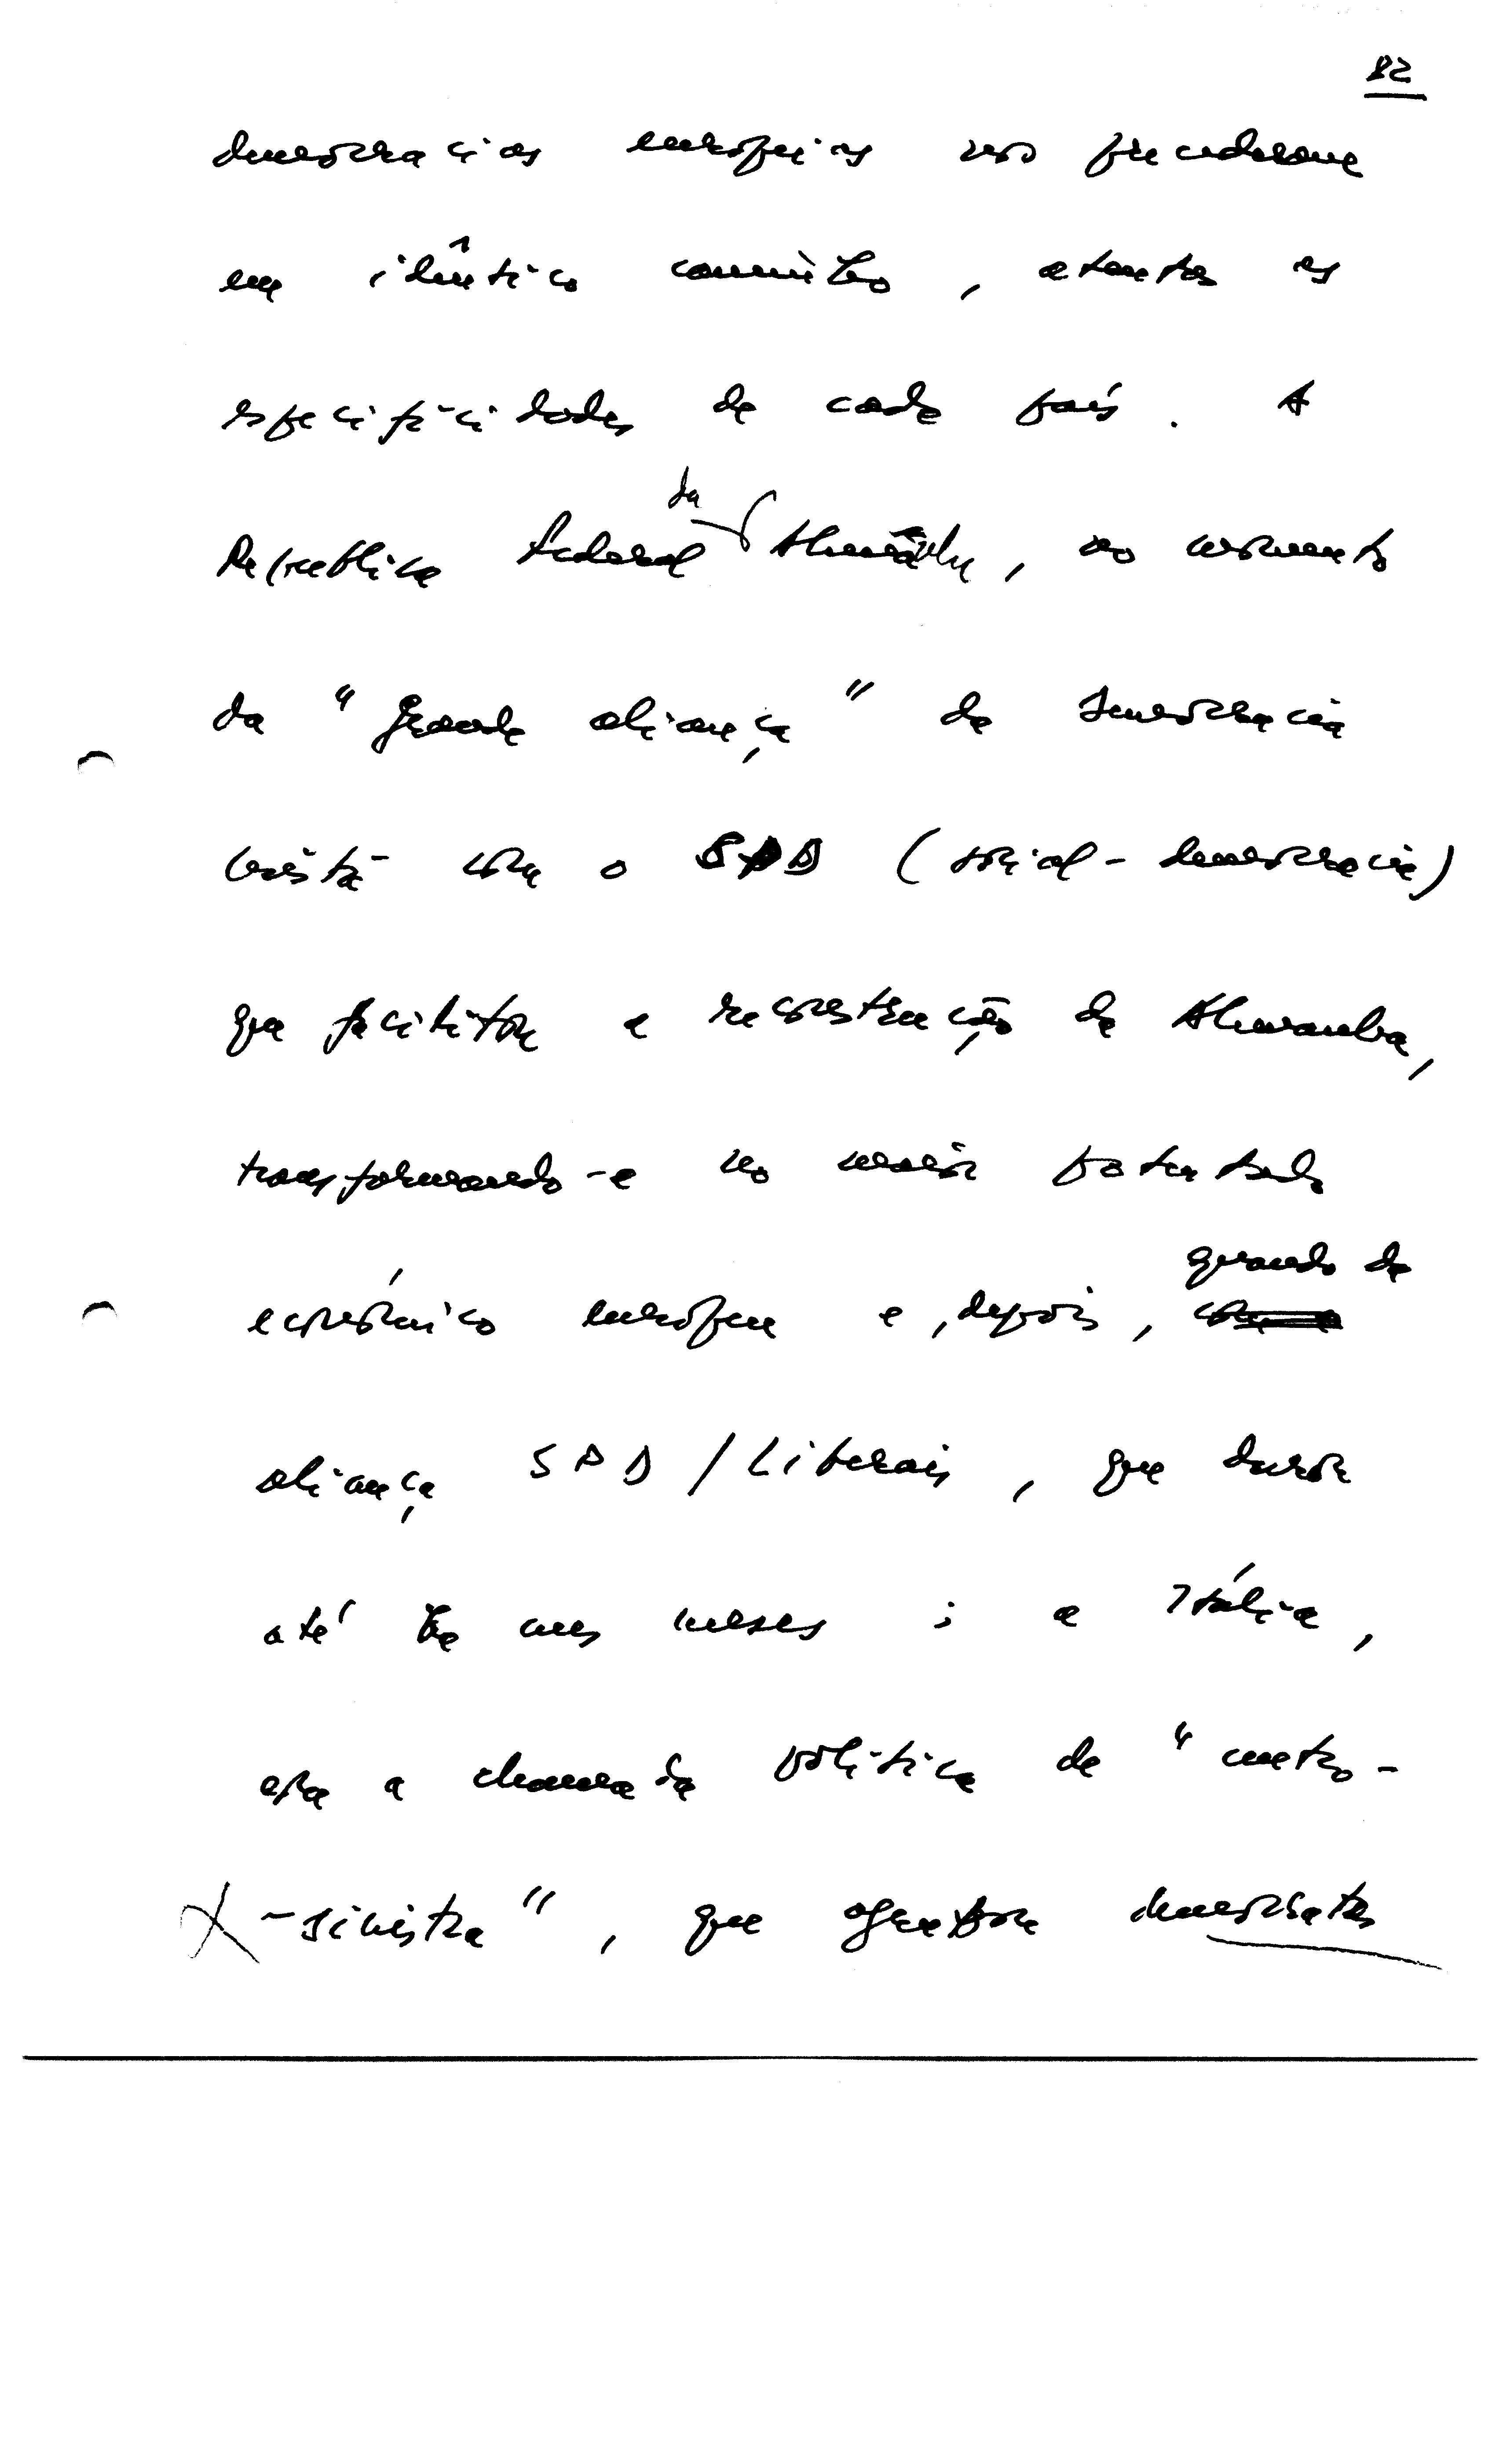 82
democracias europeias nos precederam
em idêntico caminho, atentas as
especificidades de cada país. A
República Federal da Alemanha, no momento
da "grande aliança" da democracia
cristã com o SPD (social-democracia)
que facilitou a reconstrução da Alemanha,
transformando-a no maior potentado
económico europeu e, depois, quando da
aliança SPD/Liberais, que durou
até há uns meses; a Itália,
com a chamada política de "centro-
-sinistra", que agrupou democratas